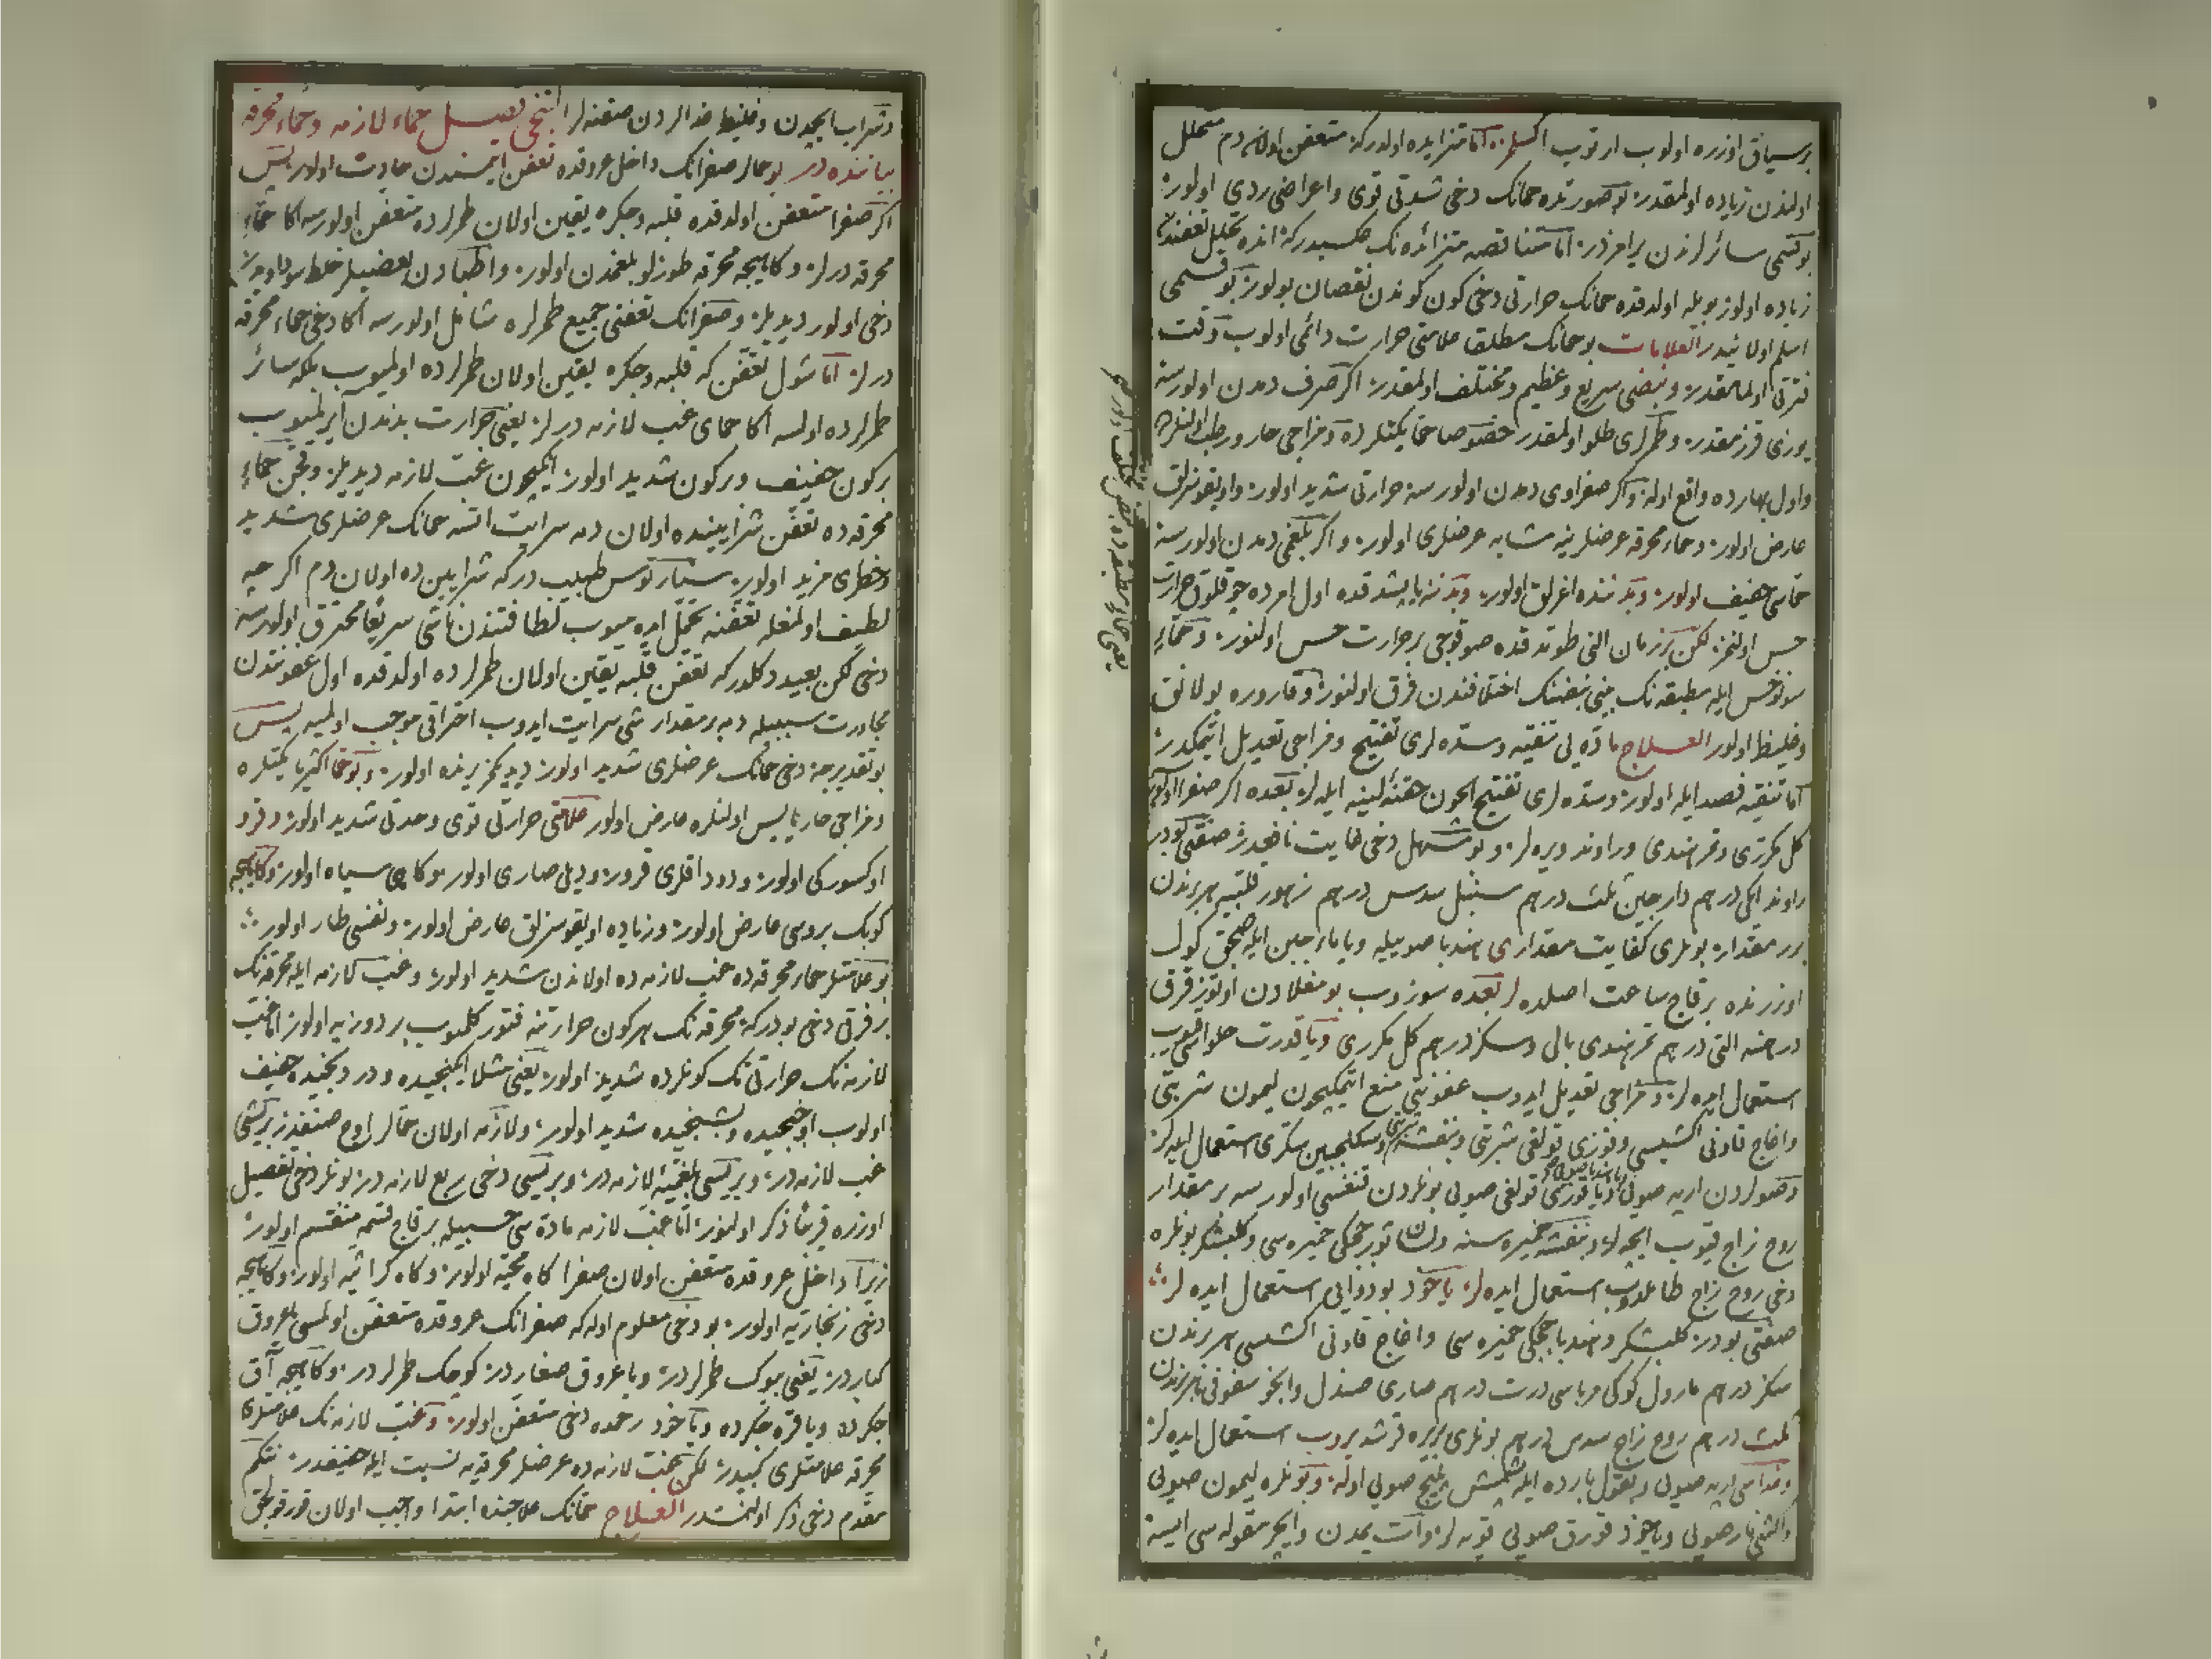 بر سياق اوزره اولوب ارتوب اكسلمز اما متزايده اولدركه متعفن اولان دم متحلل
اولندن زياده اولمقدر بو صورتده حمانك دخى شدتى قوى و اعراضى ردى اولور
بو قسمى سائرلرندن يرامزدر اما متناقصه متزائده نك عكسيدركه انده تحليل تعفندن
زياده اولور بويله اولدقده حمانك حرارتى دخى كون كوندن نقصان بولور بو قسمى
اسلم اولانيدر العلامات بو حمانك مطلقا علامتى حرارت دائمى اولوب وقت
فترتى اولمامقدر و نبضى سريع و عظيم و مختلف اولمقدر اكر صرف دمدن اولورسه
يوزى قزرمقدر و طمرلرى طلو اولمقدر خصوصا حتى يكتلرده و مزاجى حار و رطب اولنلرده
و اول بهارده واقع اوله و اكر صفراوى دمدن اولورسه حرارتى شديد اولور و اويقوسزلق
عارض اولور و حماء محرقه عرضلرينه مشابه عرضلرى اولور و اكر بلغمى دمدن اولورسه
حماسى خفيف اولور و بدننده اغرلق اولور و بدننه ياپشدقده اول امرده چوقلق حرارت
حس اولنمز لكن بر زمان الى طوتدقده صوقوجى بر حرارت حس اولنور و حماء
سونوخس ايله مطبقه نك بينى نبضنك اختلافندن فرق اولنور و قاروره بولانق
و غليظ اولور العلاج ماده يى تنقيه و سده لرى تفتيح و مزاجى تعديل ايتمكدر
اما تنقيه فصد ايله اولور و سده لرى تفتيح ايچون حقنه لينه ايله لر بعده اكر صفرا
كل مكررى و تمر هندى و راوند ويره لر و بو مسهل دخى غايت نافعدر صفتى بودر
راوند ايكى درهم دارچين ثلث درهم سنبل سدس درهم زهور قلبيه هر برندن
برر مقدار بونلرى كفايت مقدارى هندبا صوييله و يا ماء جبن ايله صيجق كول
اوزرنده بر قاچ ساعت اصلده لر بعده سوزوب بو منقلادن اوتوز قرق
درهمنه التى درهم تمر هندى بالى و سكز درهم كل مكررى و يا قدرت حلواسى قيوب
استعمال ايده لر و مزاجى تعديل ايدوب عفونتى منع ايتمكيچون ليمون شربتى
و اغاج قاونى اكشيسى و قوزى قولاغى شربتى و بنفشه و سكنجبين سكرى استعمال ايده لر
و صولردن ارپه صويى و يا قوزى قولاغى صويى بونلردن تنفسى اولورسه بر مقدار
روح زاج قيوب ايچه لر و بنفشه خميره سنه و لسان ثور چچكى خميره سى و كلبشكر بونلره
دخى روح زاج طاملدوب استعمال ايده لر ياخود بو دوايى استعمال ايده لر
صفتى بودر كلبشكر و هندبا چچكى خميره سى و اغاج قاونى اكشيسى هر برندن
سكز درهم مارول كوكى مرباسى درت درهم صارى صندل و انجو سفوفى هر برندن
ثلث درهم روح زاج سدس درهم بونلرى بربره قرشدروب استعمال ايده لر
و غداسى ارپه صويى و بقول بارده ايله پشمش پليج صويى اوله و بونلره ليمون صويى
و اكشى نار صويى و ياخود قورق صويى قويه لر و ات يمدن و ايچر مقوله سى ايسه
و شراب ايچمدن و غليظ غدالردن صقنه لر ايكنجى فصل حماء لازمه و حماء محرقه
بياننده در بو حمالر صفرانك داخل عروقده تعفن ايتمسندن حادث اولور پس
اكر صفرا متعفن اولدقده قلبه و جكره يقين اولان طمرلرده متعفن اولورسه اكا حماء
محرقه ديرلر و كاهيجه محرقه طوزلو بلغمدن اولور و اطبادن بعضيلر خلط سودادن
دخى اولور ديديلر و صفرانك تعفنى جميع طمرلره شامل اولورسه اكا دخى حماء محرقه
ديرلر اما شول تعفن كه قلبه و جكره يقين اولان طمرلرده اولميوب بلكه سائر
طمرلرده اولسه اكا حماى غب لازمه ديرلر يعنى حرارت بدندن ايرلميوب
بر كون خفيف و بر كون شديد اولور انكيچون غب لازمه ديديلر و لكن حماء
محرقه ده تعفن شرايينده اولان دمه سرايت ايتسه حمانك عرضلرى شديد
و خطرى مزيد اولور سپتاريوس طبيب دركه شرايينده اولان دم اكرچه
لطيف اولمغله تعفنه تحمل ايده ميوب لطافتندن ناشى سريعا محترق اولورسه
دخى لكن بعيد دكلدركه تعفن قلبه يقين اولان طمرلرده اولدقده اول عفونتدن
مجاورت سببيله دمه بر مقدار شى سرايت ايدوب احتراقى موجب اولميه پس
بو تقديرجه دخى حمانك عرضلرى شديد اولور ديديكمز يرنده اولور و بو حما اكثريا يكتلره
و مزاجى حار يابس اولنلره عارض اولور علامتى حرارتى قوى و حدتى شديد اولور و قرو
اوكسورك اولور و دوداقلرى قرور و ديلى صارى اولور و كاهى سياه اولور و كاهيجه
كوپك بروسى عارض اولور و زياده اويقوسزلق عارض اولور و نفسى حار اولور
بو علامتلر حماء محرقه ده غب لازمه ده اولاندن شديد اولور و غب لازمه ايله محرقه نك
بر فرقى دخى بودركه محرقه نك هر كون حرارتنه فتور كلميوب بر دوزيه اولور اما غب
لازمه نك حرارتى تك كونلرده شديد اولور يعنى مثلا ايكنجيده و دردنجيده خفيف
اولوب اوچنجيده و بشنجيده شديد اولور و لازمه اولان حمالر اوچ صنفدر بريسى
غب لازمه در و بريسى بلغميه لازمه در و بريسى دخى ربع لازمه در بونلر دخى تفصيل
اوزره قريبا ذكر اولنور اما غب لازمه ماده سى حسبيله بر قاچ قسمه منقسم اولور
زيرا داخل عروقده متعفن اولان صفرا كاه محيه اولور و كاه كراثيه اولور و كاهيجه
دخى زنجاريه اولور بو دخى معلوم اوله كه صفرانك عروقده متعفن اولمسى يا عروق
كباردر يعنى بيوك طمرلردر و يا عروق صغاردر كوچك طمرلردر و كاهيجه آق
جكرده و يا قره جكرده و ياخود رحمده دخى متعفن اولور و غب لازمه نك علامتلرى
محرقه علامتلرى كبيدر لكن غب لازمه ده عرضلر محرقه يه نسبت ايله خفيفدر نتكم
مقدم دخى ذكر اولنمشدر العلاج حمانك علاجنده ابتدا واجب اولان قورقولى